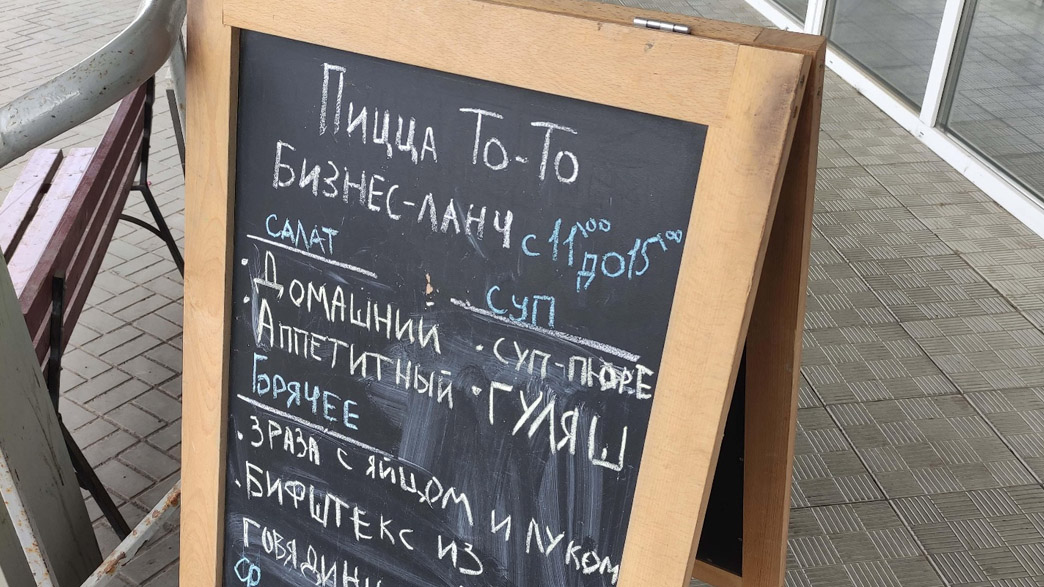 Пицца То-То
Бизнес-ланч
с 11⁰⁰ до 15⁰⁰
САЛАТ
• Домашний
• Аппетитный
СУП
• суп-пюре
• Гуляш
Горячее
• Зраза с яйцом и луком
• Бифштекс из